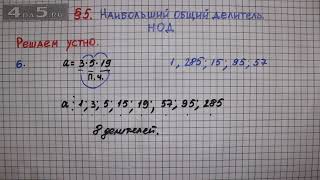 4 DA 5.RU
§5. Наибольший общий делитель.
НОД
Решаем устно.
6. a = 3·5·19 1, 285; 15; 95; 57
п.ч.
a: 1; 3; 5; 15; 19; 57; 95; 285
8 делителей.